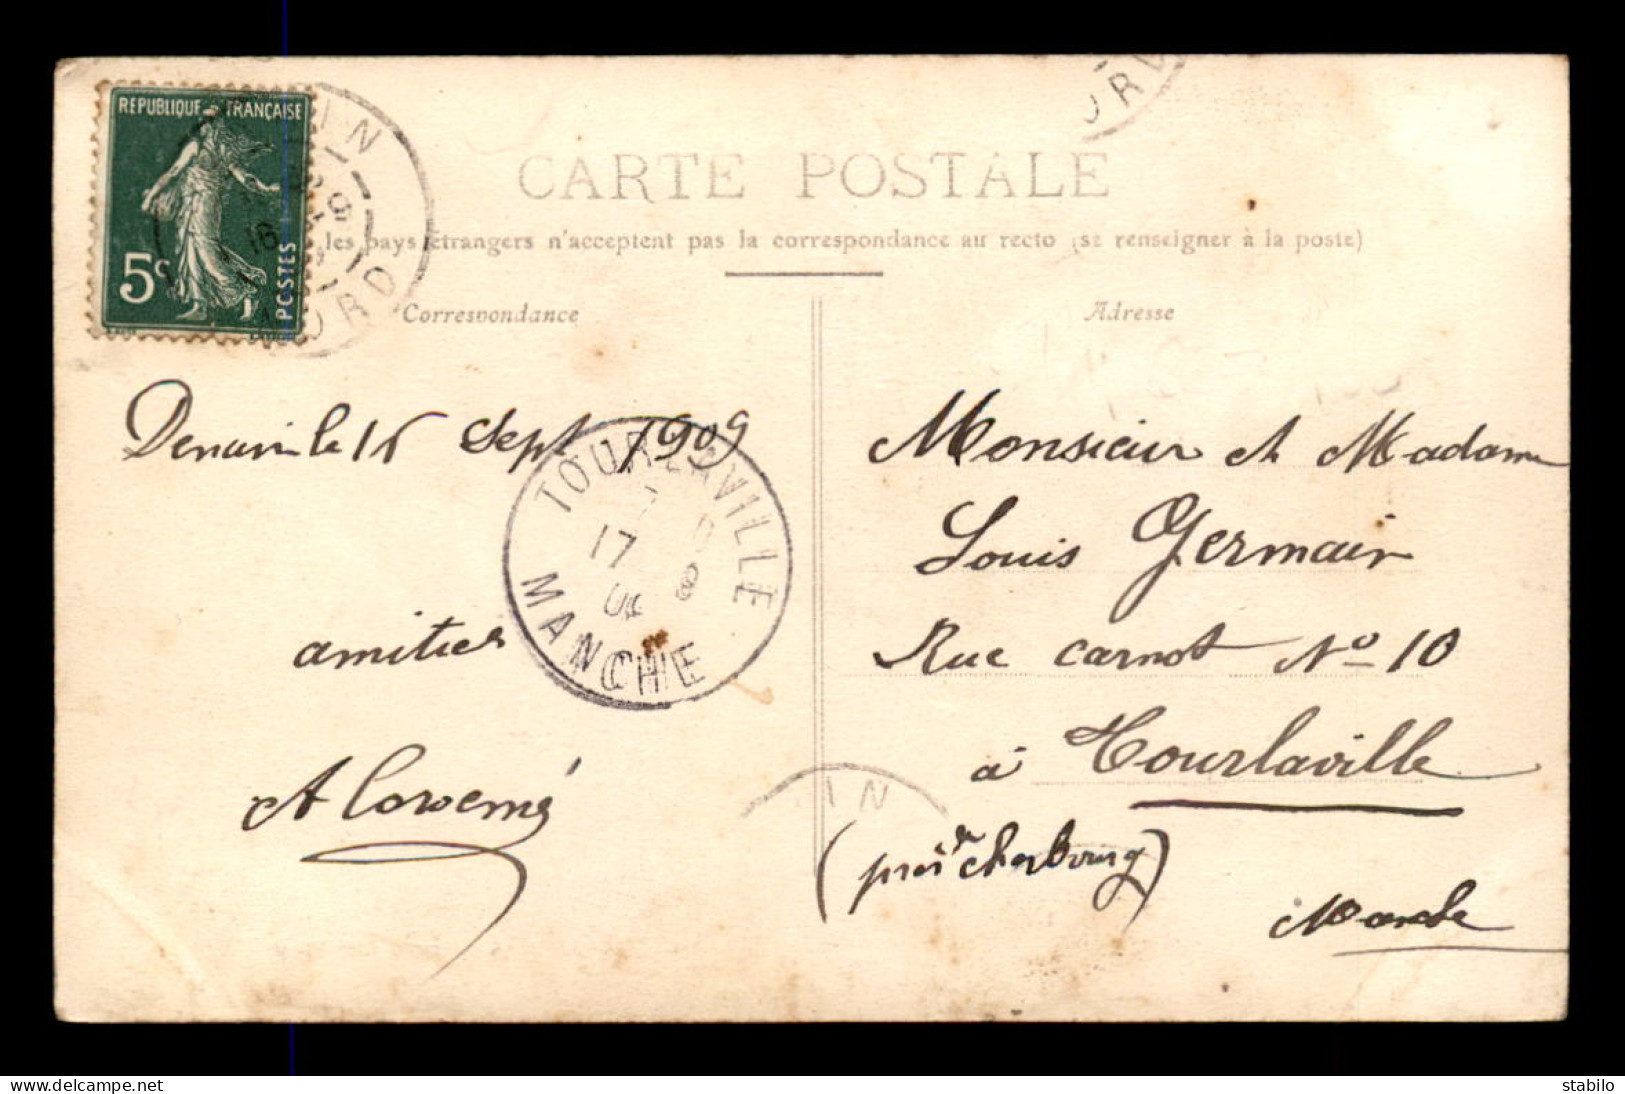 REPUBLIQUE FRANÇAISE
5c
POSTES
IN
ORD
URV
CARTE POSTALE
les pays étrangers n'acceptent pas la correspondance au recto (se renseigner à la poste)
Correspondance
Adresse
Denain le 16 Sept 1909
TOURLAVILLE
17
MANCHE
amitiés
Monsieur et Madame
Louis Germain
Rue Carnot No 10
à Tourlaville
IN
(près de Cherbourg)
Manche
delcampe.net
stabilo